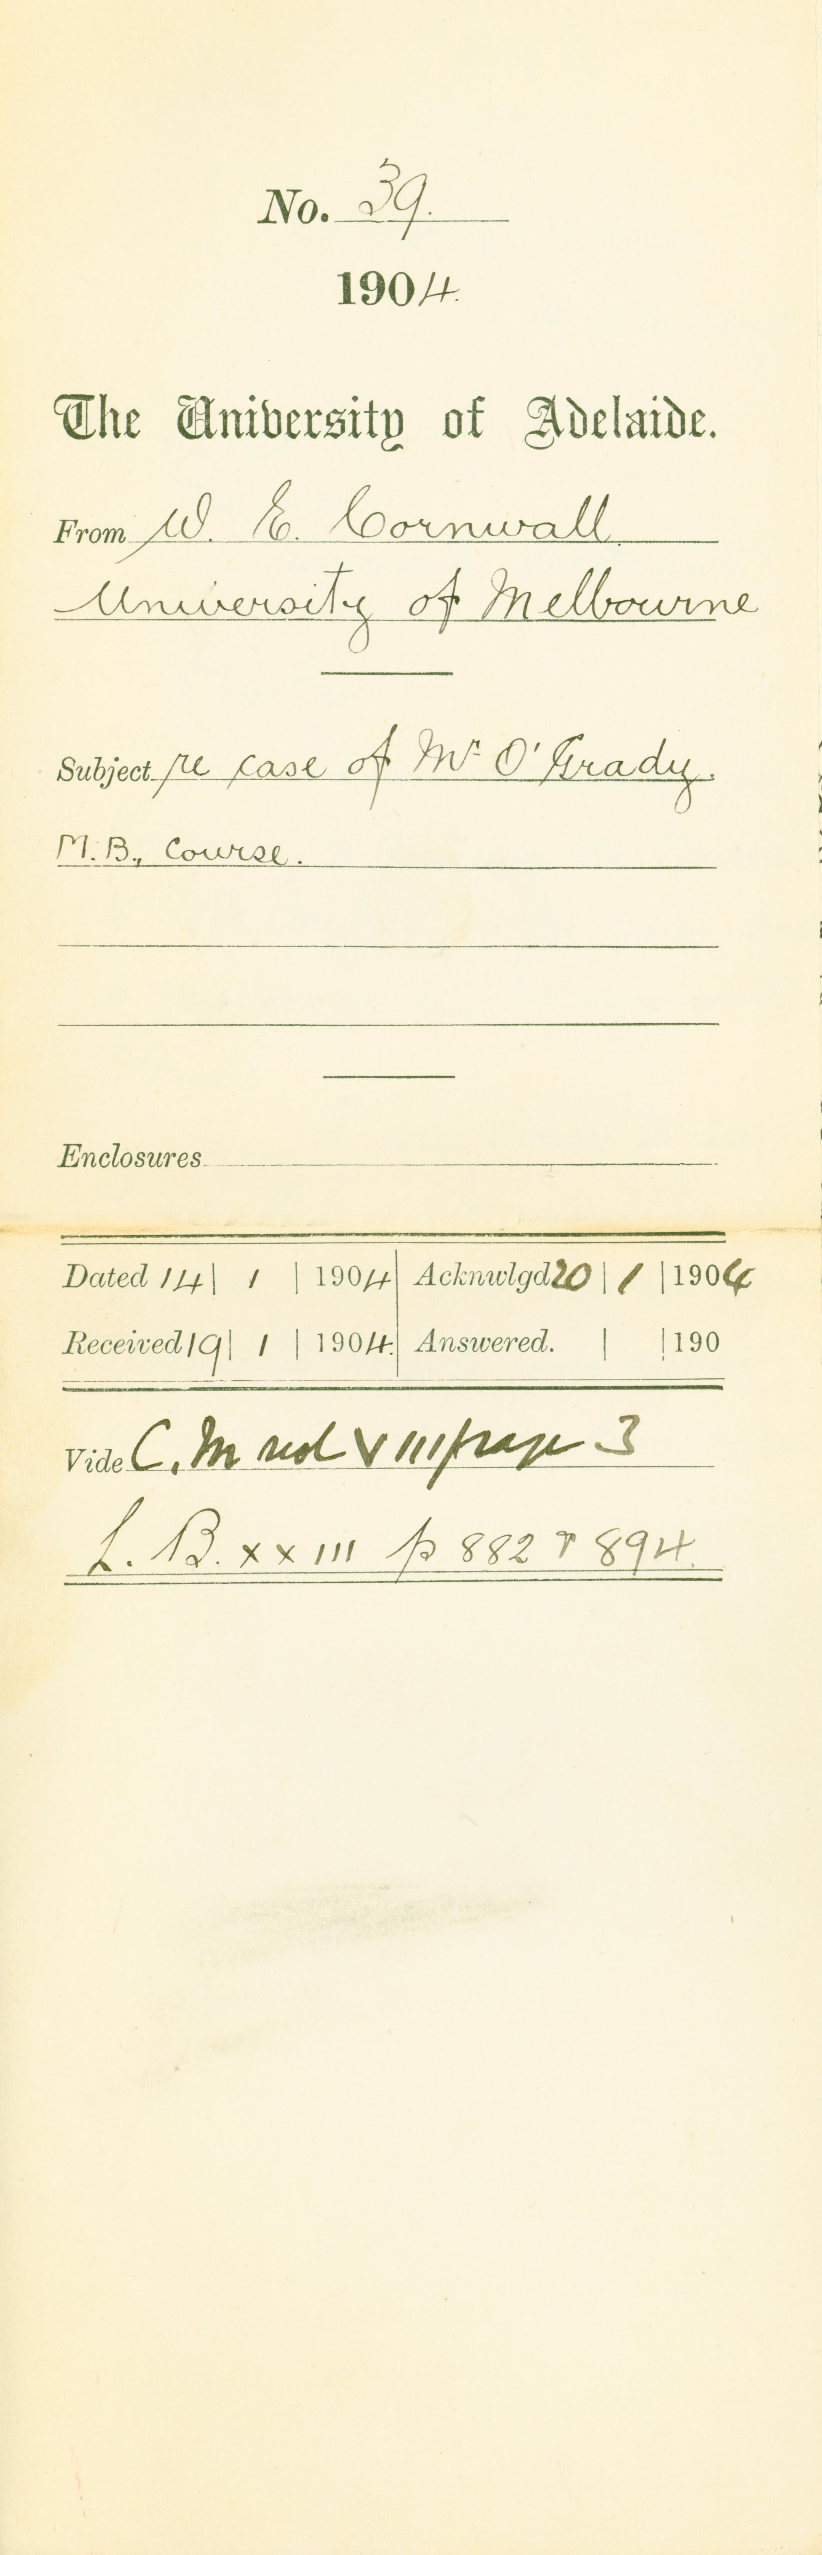 No. 39.
1904.
The University of Adelaide.
From W. E. Cornwall.
University of Melbourne
Subject re case of Mr O'Grady.
M.B., Course.
Enclosures
Dated 14 | 1 | 1904 Acknwlgd 20 | 1 | 1904
Received 19 | 1 | 1904. Answered. | | 190
Vide C. M vol VIII page 3
L. B. xxiii p 882 & 894.